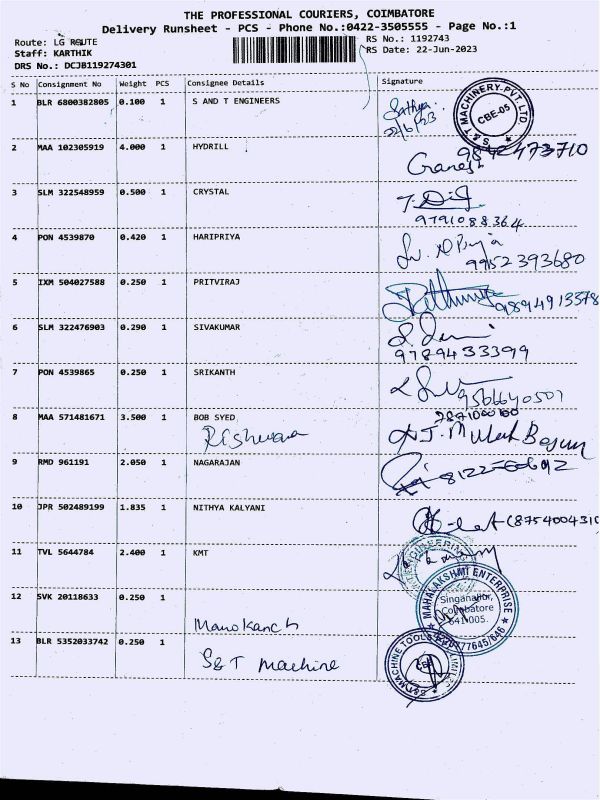 THE PROFESSIONAL COURIERS, COIMBATORE
Delivery Runsheet - PCS - Phone No.:0422-3505555 - Page No.:1
Route: LG ROUTE RS No.: 1192743
Staff: KARTHIK RS Date: 22-Jun-2023
DRS No.: DCJB119274301
S No Consignment No Weight PCS Consignee Details Signature
1 BLR 6800382805 0.100 1 S AND T ENGINEERS Sathya.
S&T MACHINERY PVT. LTD. CBE-05
2 MAA 102305919 4.000 1 HYDRILL 9842473710
Ganesh
3 SLM 322548959 0.500 1 CRYSTAL
9791088364
4 PON 4539870 0.420 1 HARIPRIYA
9952393680
5 IXM 504027588 0.250 1 PRITVIRAJ
9894913378
6 SLM 322476903 0.290 1 SIVAKUMAR
9789433399
7 PON 4539865 0.250 1 SRIKANTH
9566640507
8 MAA 571481671 3.500 1 BOB SYED
9 RMD 961191 2.050 1 NAGARAJAN
10 JPR 502489199 1.835 1 NITHYA KALYANI
(8754004310
11 TVL 5644784 2.400 1 KMT
12 SVK 20118633 0.250 1
MAHALAKSHMI ENTERPRISE
Singanallur,
Coimbatore
641 005.
Manokanch
13 BLR 5352033742 0.250 1
S&T Machine